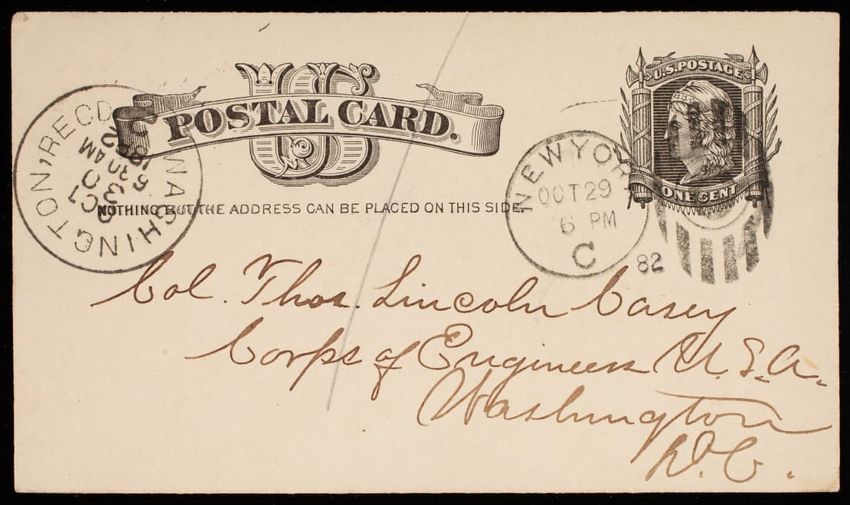 US
POSTAL CARD.
U.S. POSTAGE
ONE CENT
NOTHING BUT THE ADDRESS CAN BE PLACED ON THIS SIDE.
WASHINGTON, RECD.
OCT
30
5 30 AM
1882
NEW YORK
OCT 29
6 PM
C
82
Col. Thos. Lincoln Casey
Corps of Engineers U.S.A.
Washington
D.C.